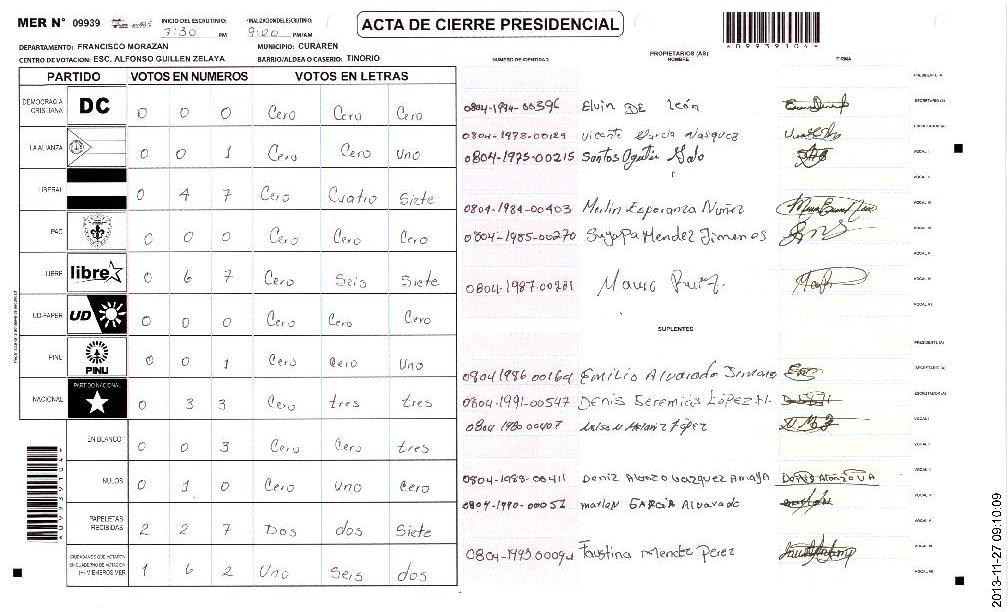 MER N° 09939 INICIO DEL ESCRUTINIO: 7:30 PM FINALIZACION DEL ESCRUTINIO: 9:00 PM/AM ACTA DE CIERRE PRESIDENCIAL
DEPARTAMENTO: FRANCISCO MORAZAN MUNICIPIO: CURAREN
CENTRO DE VOTACION: ESC. ALFONSO GUILLEN ZELAYA BARRIO/ALDEA O CASERIO: TINORIO
PARTIDO VOTOS EN NUMEROS VOTOS EN LETRAS
DEMOCRACIA CRISTIANA DC 0 0 0 Cero Cero Cero
LA ALIANZA 0 0 1 Cero Cero Uno
LIBERAL 0 4 7 Cero Cuatro Siete
PAC 0 0 0 Cero Cero Cero
LIBRE libre 0 6 7 Cero Seis Siete
UD-FAPER UD 0 0 0 Cero Cero Cero
PINU PINU 0 0 1 Cero Cero Uno
NACIONAL PARTIDO NACIONAL 0 3 3 Cero tres tres
EN BLANCO 0 0 3 Cero Cero tres
NULOS 0 1 0 Cero Uno Cero
PAPELETAS RECIBIDAS 2 2 7 Dos dos Siete
CIUDADANOS QUE VOTARON EN CUADERNO DE VOTACION (+) MIEMBROS MER 1 6 2 Uno Seis dos
PROPIETARIOS (AS)
NUMERO DE IDENTIDAD NOMBRE FIRMA
PRESIDENTE (A)
0804-1974-00396 Elvin DE León SECRETARIO (A)
0804-1978-00129 Vicente Murcia Vasquez ESCRUTADOR (A)
0804-1975-00215 Santos Galo VOCAL I
VOCAL II
0804-1984-00403 Merlin Esperanza Nuñez VOCAL III
0804-1985-00270 Suyapa Mendez Jimenes
VOCAL V
0804-1987-00281 Mauro Ruiz
SUPLENTES
PRESIDENTE (A)
0804 1986 00164 Emilio Alvarado SECRETARIO (A)
0804-1991-00547 Denis Geremias López H. ESCRUTADOR (A)
VOCAL I
0804-1988-00411 Deniz Alonzo Vazquez Amaya
0804-1990-00056 marlon GARCIA Alvarado
0804-1993 00094 Faustina Mendez Perez
2013-11-27 09:10:09